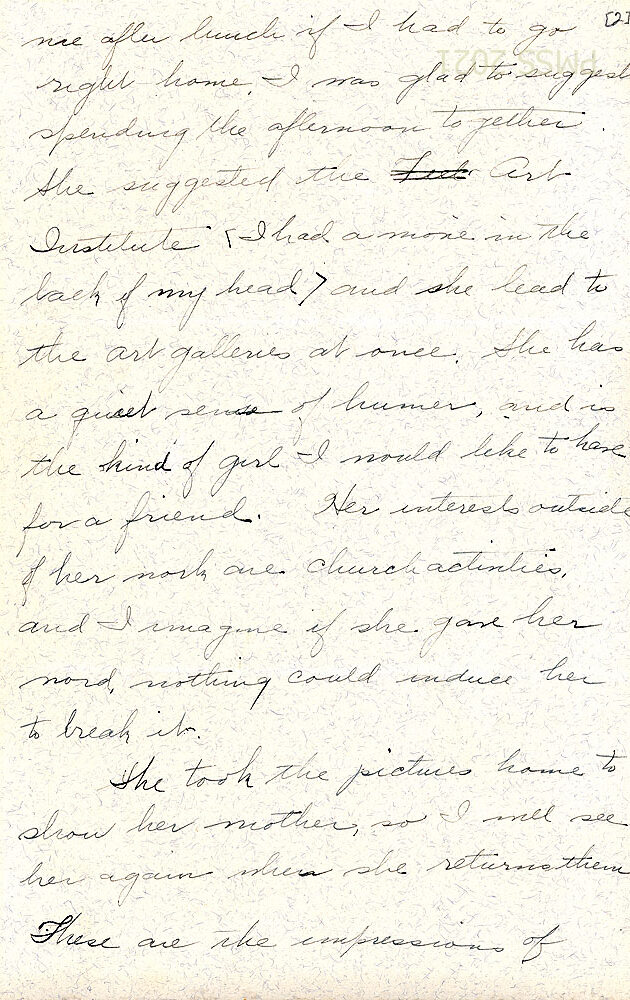 [2]
PMSS 2021
me after lunch if I had to go
right home, I was glad to suggest
spending the afternoon together.
She suggested the Art
Institute (I had a movie in the
back of my head) and she lead to
the art galleries at once. She has
a quiet sense of humer, and is
the kind of girl I would like to have
for a friend. Her interests outside
of her work are church activities,
and I imagine if she gave her
word, nothing could induce her
to break it.
She took the pictures home to
show her mother, so I will see
her again when she returns them
These are the impressions of